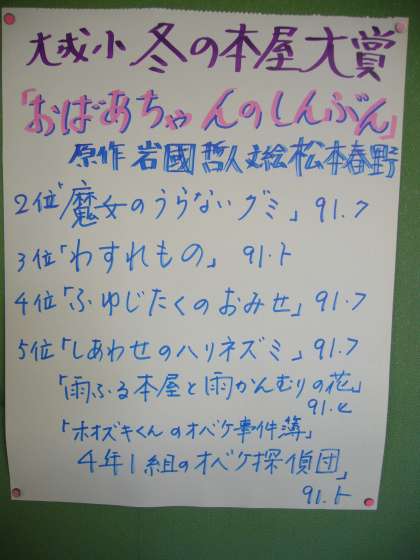 大成小 冬の本屋大賞
「おばあちゃんのしんぶん」
原作 岩國哲人 文絵 松本春野
2位「魔女のうらないグミ」 91.フ
3位「わすれもの」 91.ト
4位「ふゆじたくのおみせ」 91.フ
5位「しあわせのハリネズミ」 91.フ
「雨ふる本屋と雨かんむりの花」
91.ヒ
「ホオズキくんのオバケ事件簿」
4年1組のオバケ探偵団」
91.ト